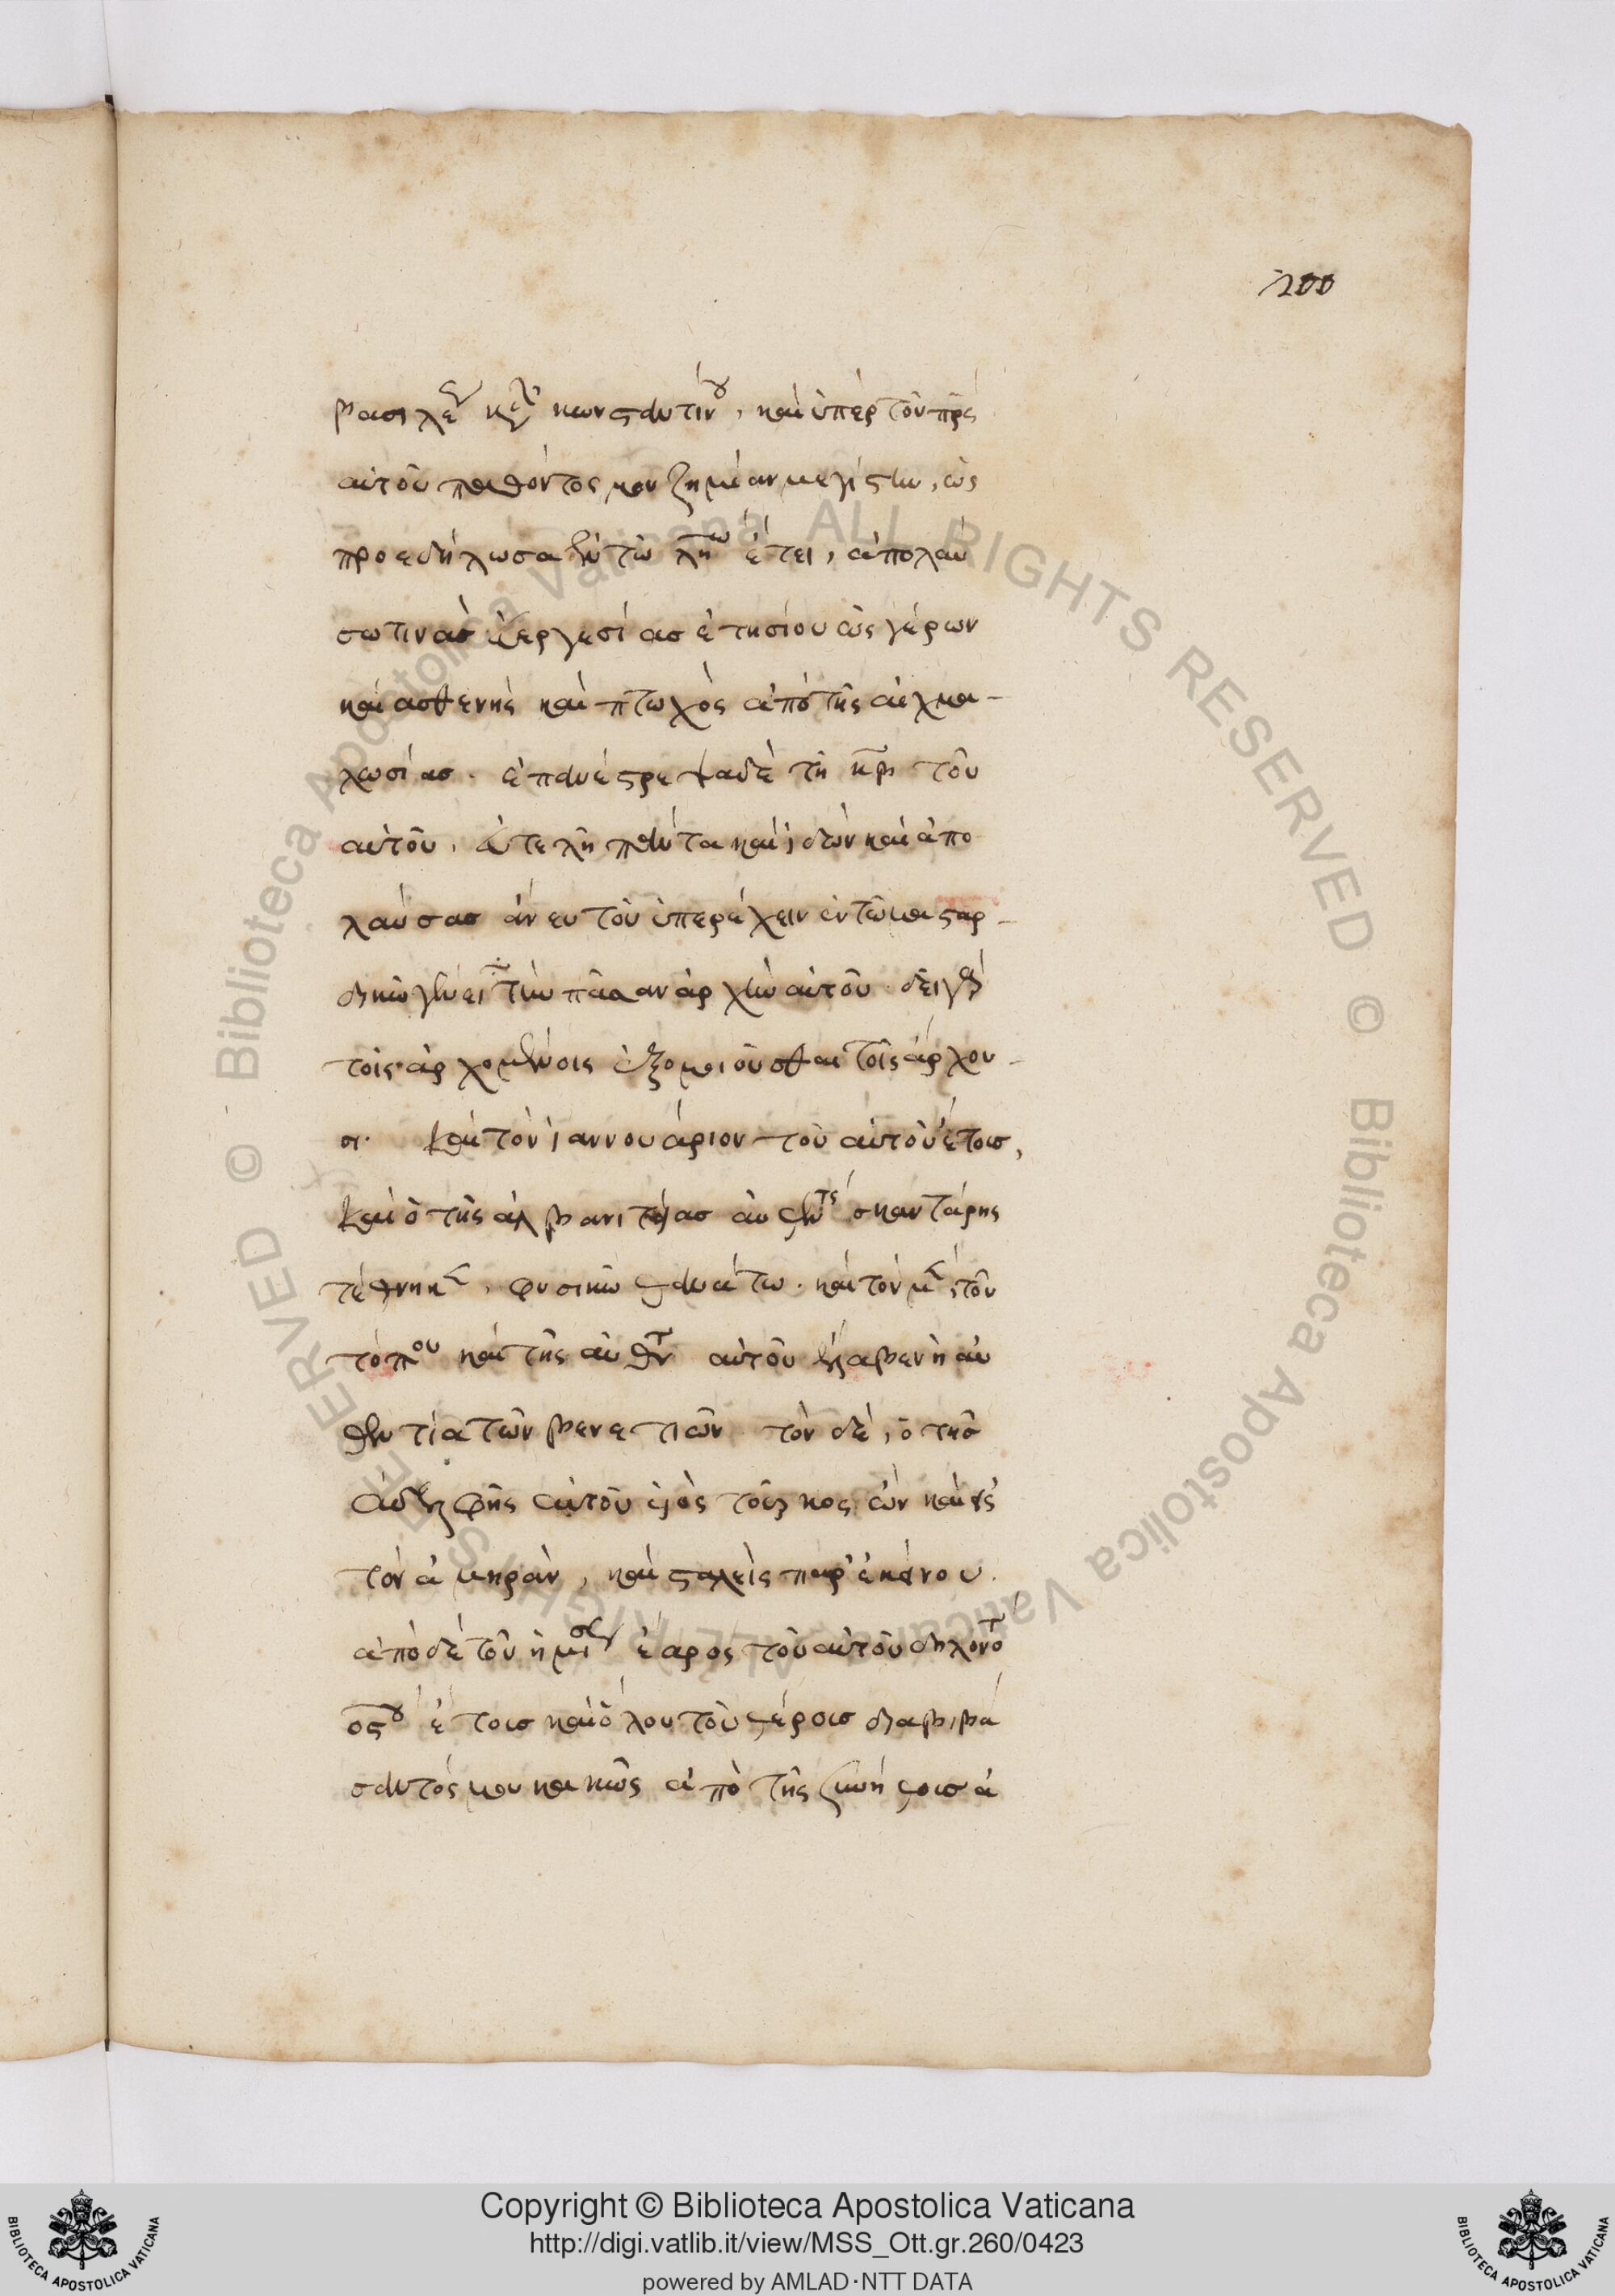 200
βασιλέως κυροῦ κωνσταντίνου, καὶ ὑπὲρ τοῦ πρὸς
αὐτοῦ παθόντος μου ζημίαν μεγίστην, ὡς
προεδήλωσα ἐν τῷ λη^ω ἔτει, ἀπολαύ
σω τινὰς εὐεργεσίας ἐτησίου ὡς γέρων
καὶ ἀσθενὴς καὶ πτωχὸς ἀπὸ τῆς αἰχμα-
λωσίας. ἐπανέστρεψα δὲ τῆ κβ τοῦ
αὐτοῦ, ἀτελῆ πάντα καὶ ἰδὼν καὶ ἀπο
λαύσας ἄνευ τοῦ ὑπερέχειν ἐν τῷ μαστρ-
τὴν πᾶσαν ἀρχὴν αὐτοῦ. δεῖ γὰρ
τοῖς ἀρχομένοις ἐξομοιοῦσθαι τοῖς ἄρχου-
σι. Καὶ τὸν ἰαννουάριον τοῦ αὐτοῦ ἔτους,
Καὶ ὁ τῆς ἀλβανιτίας αὐθέντης σκανταρης
τέθνηκε, φυσικῷ θανάτῳ. καὶ τὸν μὲν τοῦ
τόπου καὶ τῆς αὐθεντίας αὐτοῦ ἔλαβεν ἡ αὐ
θεντία τῶν βενετιῶν. τὸν δὲ, ὁ τῆς
ἀδελφῆς αὐτοῦ υἱὸς τοῦρκος ὢν καὶ εἰς
τὸν ἀμηρᾶν, καὶ σταλεὶς παρ' ἐκείνου.
ἀπὸ δὲ τοῦ ἡμίσεως ἔαρος τοῦ αὐτοῦ δηλονότι
οστοῦ ἔτους καὶ ὅλου τοῦ θέρους διαβιβά
σαντός μου κακῶς ἀπὸ τῆς συνήθους ἀ
Copyright © Biblioteca Apostolica Vaticana
http://digi.vatlib.it/view/MSS_Ott.gr.260/0423
powered by AMLAD·NTT DATA
BIBLIOTECA APOSTOLICA VATICANA
BIBLIOTECA APOSTOLICA VATICANA
© Biblioteca Apostolica Vaticana ALL RIGHTS RESERVED
© Biblioteca Apostolica Vaticana ALL RIGHTS RESERVED